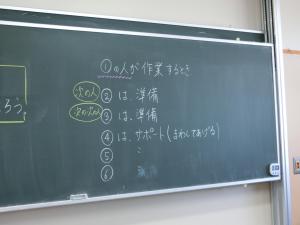 ①の人が作業するとき
次の人 ②は、準備
次の次の人 ③は、準備
④は、サポート(まわしてあげる)
⑤
⑥
ろう。